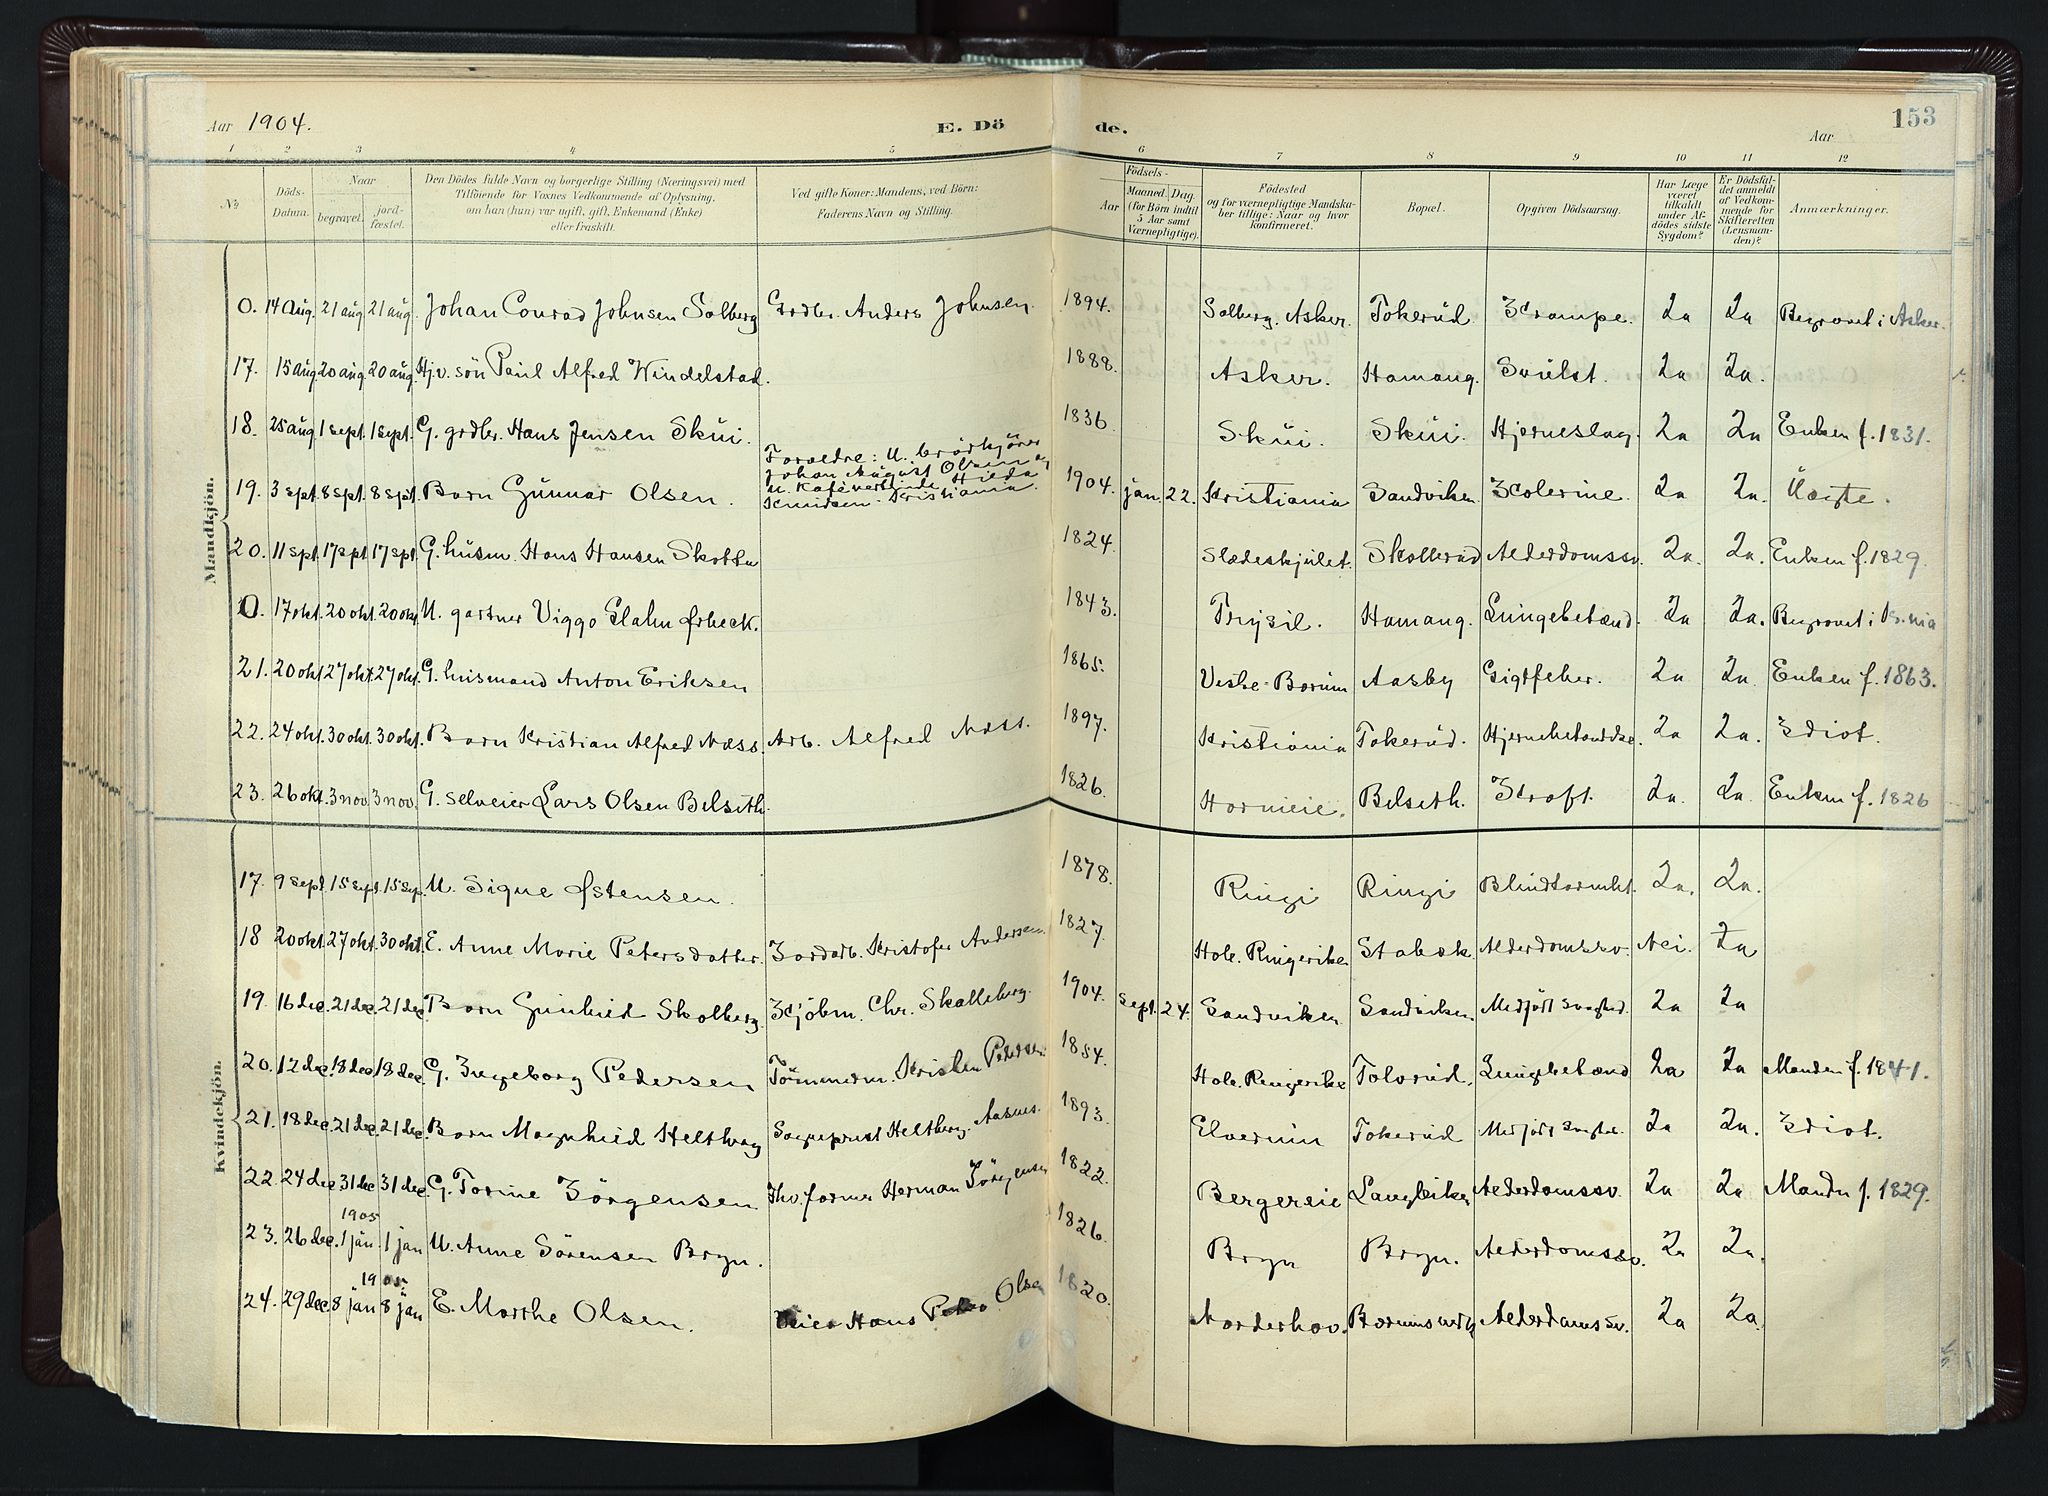 Aar 1904. E. Dö de. Aar 153
1 2 3 4 5 6 7 8 9 10 11 12
No Döds-Datum. Naar begravet. jord-fæstet. Den Dödes fulde Navn og borgerlige Stilling (Næringsvei) med Tilföiende for Voxnes Vedkommende af Oplysning, om han (hun) var ugift, gift, Enkemand (Enke) eller fraskilt. Ved gifte Koner: Mandens, ved Börn: Faderens Navn og Stilling. Födsels- Aar Maaned. Dag. (for Börn indtil 5 Aar samt Værnepligtige). Födested og for værnepligtige Mandskaber tillige: Naar og hvor konfirmeret. Bopæl. Opgiven Dödsaarsag. Har Læge været tilkaldt under Afdödes sidste Sygdom? Er Dödsfaldet anmeldt af Vedkommende for Skifteretten (Lensmanden)? Anmærkninger.
Mandkjön.
0. 14 aug. 21 aug 21 aug. Johan Conrad Johnsen Solberg Grdbr. Anders Johnsen. 1894. Solberg. Asker. Tokerud. Krampe. Ja Ja Begravet i Asker.
17. 15 aug. 20 aug. 20 aug. Hjv. søn Paul Alfred Windelstad. 1888. Asker. Hamang. Svulst. Ja Ja.
18. 25 aug. 1 sept. 1 sept. G. grdbr. Hans Jensen Skui. 1836. Skui. Skui. Hjerneslag. Ja Ja Enken f. 1831.
19. 3 spt. 8 spt. 8 spt. Barn Gunnar Olsen. Forældre: U. brødkjører Johan August Olsen og u. Kafévertinde Hilda Knudsen. Kristiania. 1904. jan. 22. Kristiania Sandviken Kolerine. Ja Ja. Uægte.
20. 11 spt. 17 spt. 17 spt. G. husm. Hans Hansen Skotta 1824. Slædeskjulet. Skollerud Alderdomssv. Ja. Ja. Enken f. 1829.
0. 17 okt. 20 okt. 20 okt. U. gartner Viggo Glahn Ørbeck. 1843. Trysil. Hamang. Lungebetænd. Ja Ja. Begravet i K.nia
21. 20 okt 27 okt. 27 okt. G. husmand Anton Eriksen 1865. Vestre Bærum Aasby Gigtfeber. Ja Ja Enken f. 1863.
22. 24 okt. 30 okt. 30 okt. Barn Kristian Alfred Næss. Arb. Alfred Næss. 1897. Kristiania Tokerud. Hjernebetændelse. Ja Ja. Idiot.
23. 26 okt. 3 nov. 3 nov. G. selveier Lars Olsen Belseth. 1826. Horneie. Belseth. Kræft. Ja. Ja. Enken f. 1826
Kvindekjön.
17. 9 sept. 15 sept. 15 sep. U. Signe Østensen. 1878. Ringi Ringi Blindtarmbt. Ja. Ja.
18 20 okt. 27 okt. 30 okt. E. Anne Marie Petersdatter. Jordarb. Kristofer Andersen 1827. Hole. Ringerike Stabæk. Alderdomssv. Nei. Ja
19. 16 dec. 21 dec. 21 dec. Barn Gunhild Skolberg. Kjøbm. Chr. Skalleberg. 1904. Sept. 24. Sandviken Sandviken Medfødt svaghed. Ja Ja
20. 12 dec. 18 dec. 18 dec. G. Ingeborg Pedersen Tømmerm. Kristen Pedersen 1854. Hole. Ringerike Lungebetænd Ja Ja Manden f. 1841.
21. 18 dec. 21 dec. 21 dec. Barn Magnhild Heltberg Sogneprest Heltberg. Aasnes. 1893. Elverum Tokerud Medfødt svaghed. Ja Ja. Idiot.
22. 24 dec. 31 dec 31 dec. G. Torine Jørgensen fhv. former Herman Jørgensen 1822. Bergerseie Langleiken Alderdomssv. Ja Ja Manden f. 1829.
23. 26 dec. 1905 1 jan. 1 jan U. Anne Sørensen Bryn. 1826. Bryn Bryn. Alderdomssv. Ja Ja.
24. 29 dec. 1905 8 jan 8 jan E. Marthe Olsen. Hans Peter Olsen 1820. Norderhov. Bærumsverk Alderdomssv. Ja Ja.